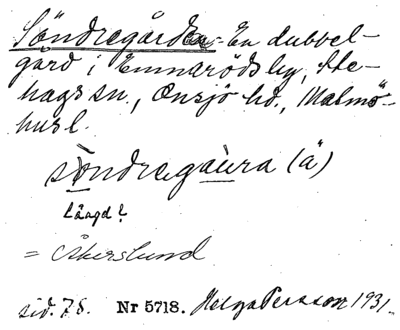 Söndregården - En dubbel-
gård i Emmarödsby, Ste-
hags sn, Onsjö hd., Malmö-
hus l.
söndregaùra (å)
Längd?
= Åkerslund
sid. 78. Nr 5718. Helga Persson 1931.